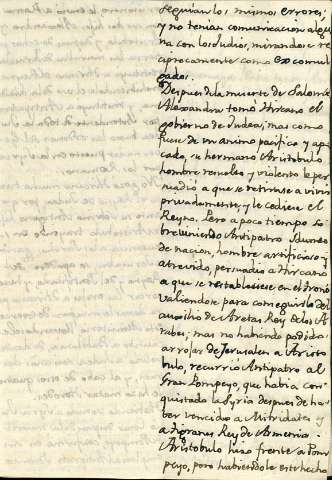 seguian los mismos errores,
y no tenian comunicacion algu
na con los Judios, mirandose re
ciprocamente como excomul
gados.
Despues de la muerte de Salomè
Alexandra tomó Hircano el
gobierno de Judea; mas como
fuese de un animo pacifico y apo
cado, su hermano Aristobulo
hombre reveltes y violento le per
suadio a que se retirase a vivir
privadamente, y le cediese el
Reyno. Pero a poco tiempo so
breviniendo Antipatro Idumeo
de nacion, hombre artificioso y
atrevido, persuadio a Hircano
a que se restableciese en el trono
valiendose para conseguirlo del
auxilio de Aretas Rey de los A
rabes; mas no habiendo podido
arrojar de Jerusalen a Aristo
bulo, recurrió Antipatro al
Gran Pompeyo, que habia con
quistado la Syria despues de ha
ber vencido a Mitridates y
a Tigranes Rey de Armenia.
Aristobulo hizo frente a Pom
peyo, pero habiendole este hecho